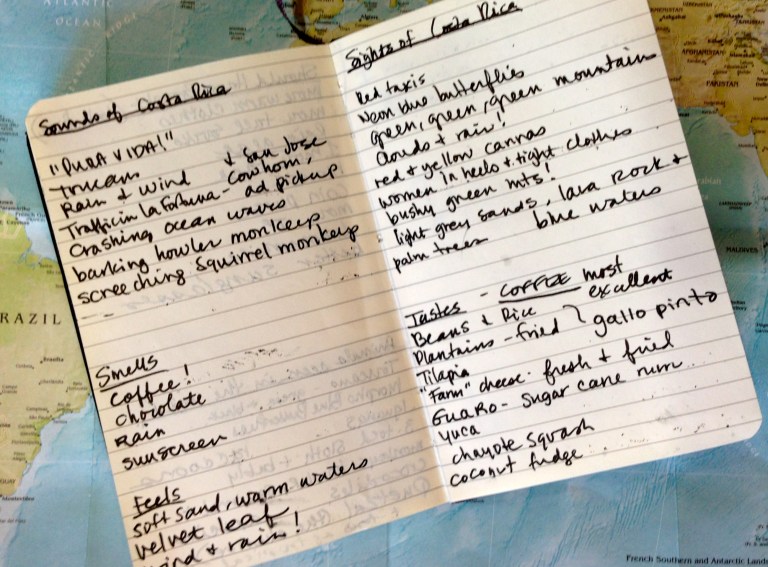 Sounds of Costa Rica
"PURA VIDA!"
Trucans
Rain & Wind & San Jose
Traffic in La Fortuna - Cow horn,
ad pickup
Crashing ocean waves
barking howler monkeys
screeching squirrel monkeys
Smells
Coffee!
chocolate
Rain
sunscreen
Feels
soft sand, warm waters
velvet leaf
wind & rain!
Sights of Costa Rica
Red taxis
Neon blue butterflies
green, green, green mountains
Clouds & rain!
red & yellow cannas
women in heels & tight clothes
bushy green mts!
light grey sands, lava rock &
palm trees blue waters
Tastes - COFFEE most
excellent
Beans & Rice
Plantains - fried } gallo pinto
Tilapia
"Farm" cheese - fresh & fried
GUARO - Sugar cane rum
Yuca
chayote squash
coconut fudge
ATLANTIC
OCEAN
RAZIL
AFGHANISTAN
MALDIVES
Montevideo
French Southern and Antarctic Lands